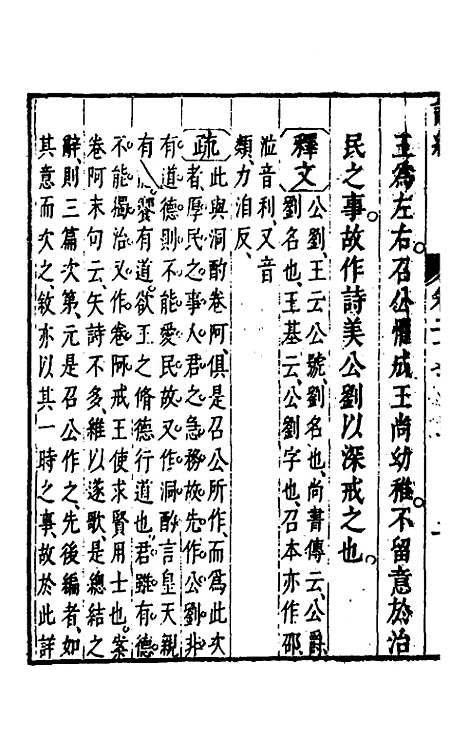 王爲左右。召公懼成王尚幼稚。不留意於治
民之事。故作詩美公劉以深戒之也。
釋文 公劉、王云公號、劉名也、尚書傳云、公爵、
劉名也、王基云、公劉字也、召本亦作邵、
涖音利、又音
類力洎反、
疏 此與洞酌卷阿、俱是召公所作、而爲此次
者、厚民之事、人君之急務、故先作公劉、非
有道德、則不能愛民、故又作洞酌、言皇天親
有饗有道、欲王之脩德行道也、君雖有德
不能獨治、又作卷阿、戒王使求賢用士也、案
卷阿末句云、矢詩不多、維以遂歌、是總結之
辭、則三篇次第、元是召公作之、先後編者、如
其意而次之、敘亦以其一時之事、故於此詳